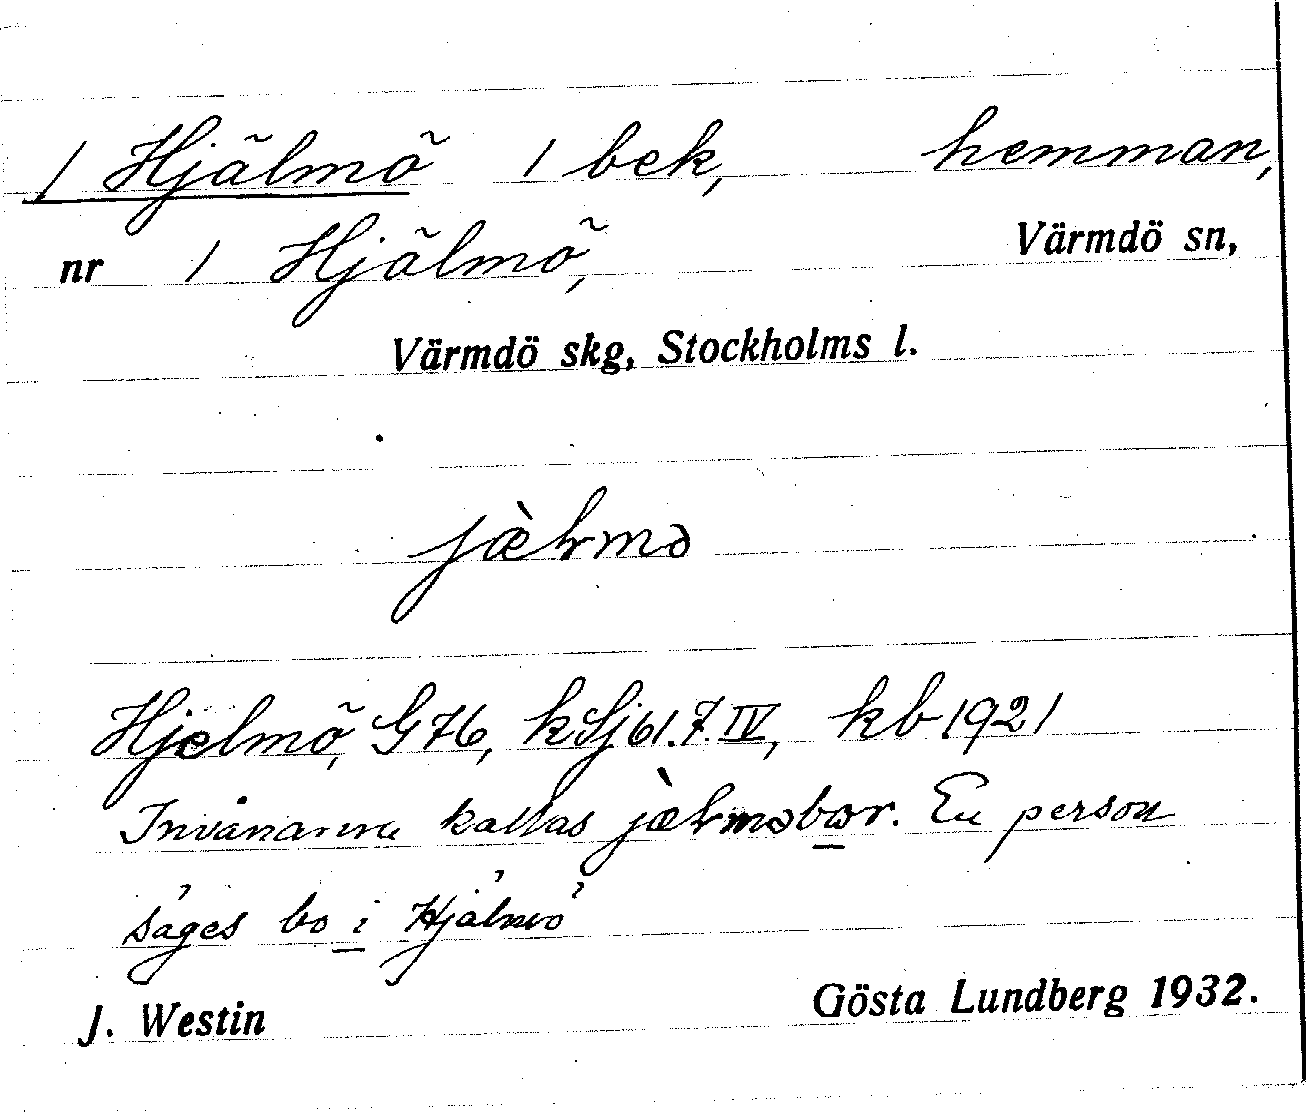 1 Hjälmö 1 bek, hemman,
nr 1 Hjälmö, Värmdö sn,
Värmdö skg, Stockholms l.
jæ̀lmə
Hjelmö, G 76, kSj 61.7.IV, kb 1921
Invånarna kallas jæ̀lməbor. En person
säges bo i Hjälmö
J. Westin Gösta Lundberg 1932.